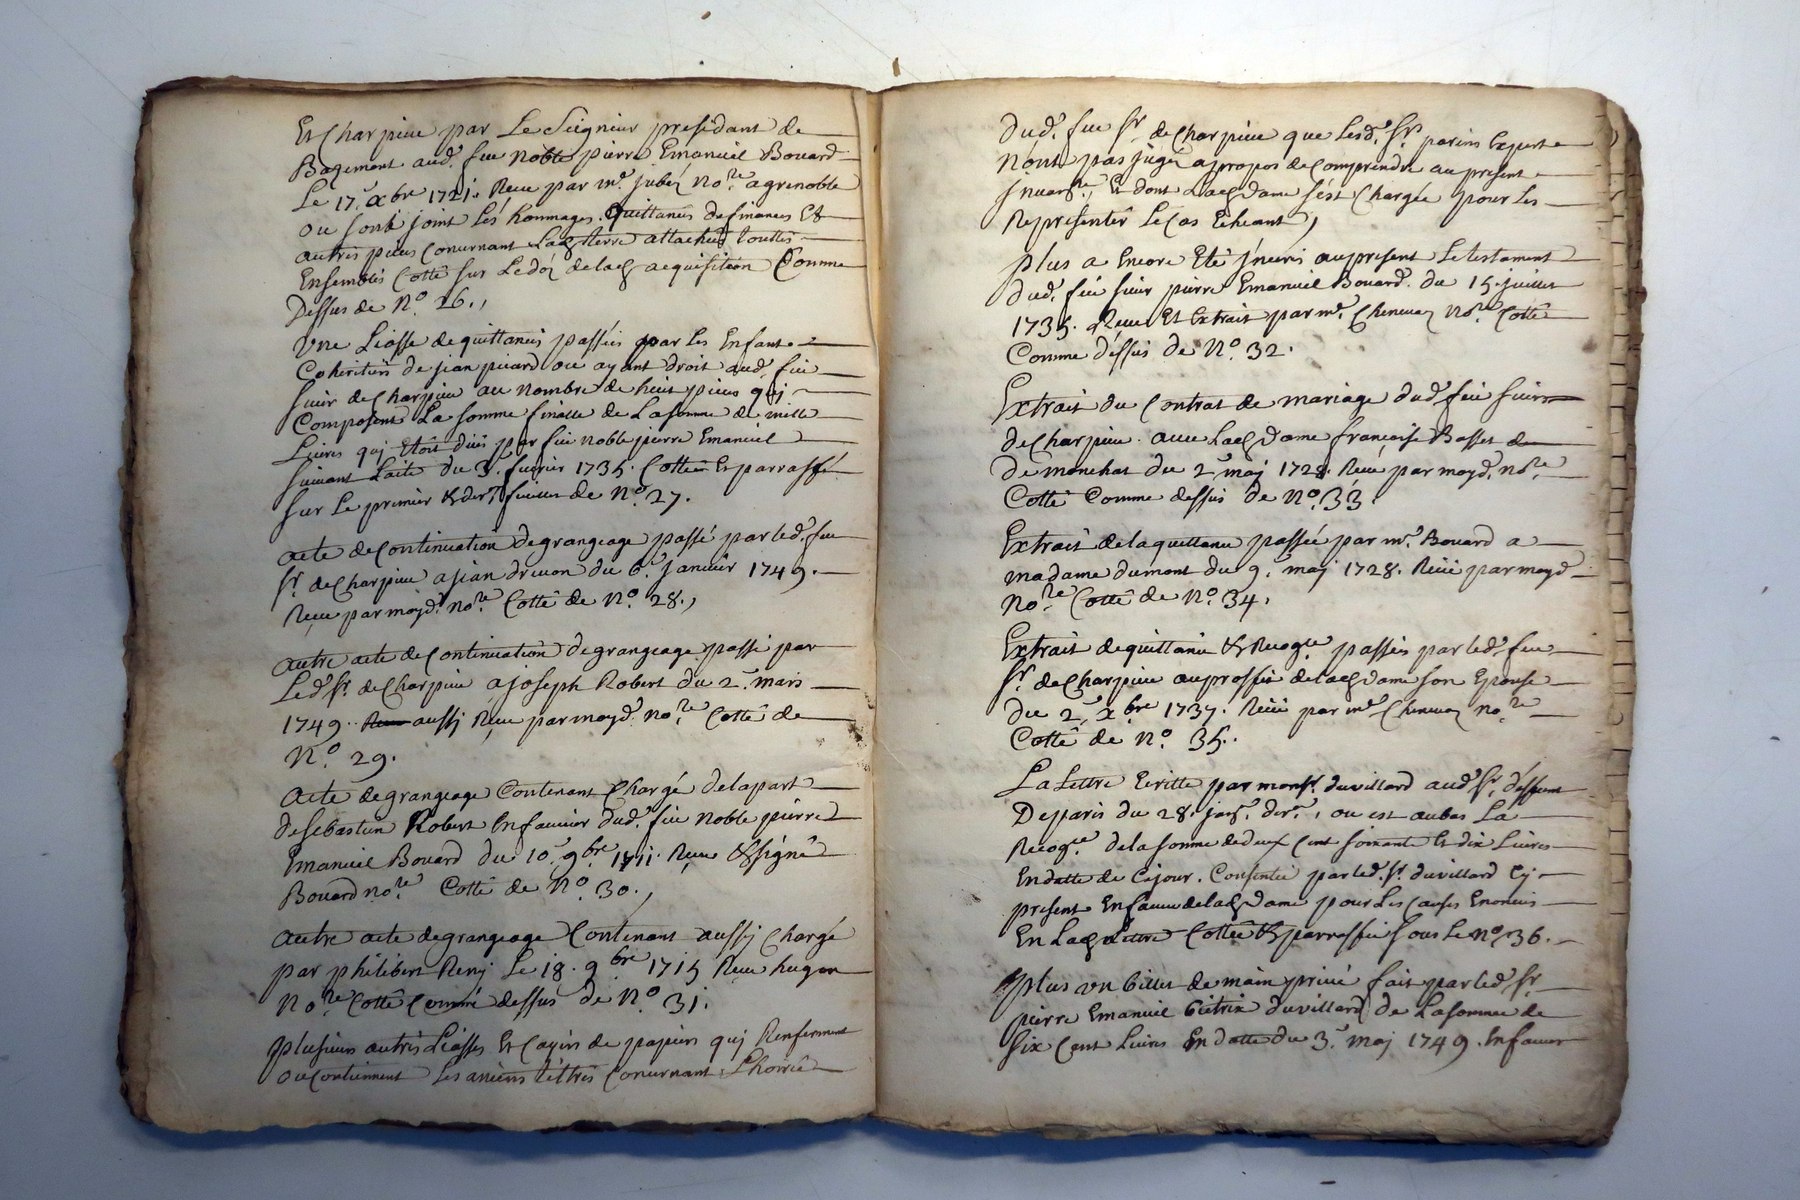 Et Charpieu par Le Seigneur presidant de
Bagemont aud. feu Noble pierre Emanuel Bouard
Le 17. xbre 1721. Receu par me. Jubez Nore a grenoble
ou sont joint Les hommages. Quittances de finances Et
autres pieces Concernant Lad. terre attachés touttes
Ensembles Cotté sur Le doz de lad. acquisition Comme
Dessus de No. 26.,
Une Liasse de quittances passées par Les Enfants
Coheritiers de jean picard ou ayant droit aud. feu
sieur de Charpieu au nombre de huit pieces quj
Composent La somme finalle de La somme de mille
Livres quj Etoit düe par feu noble pierre Emanüel
suivant Lacte du 3. fevrier 1735. Cottée Et parraffé
sur Le premier & der. feuillet de No. 27.
acte de Continuation de grangeage passé par led. feu
sr. de Charpieu a jean drevon du 6. janvier 1749.
Receu par moyd. nore. Cotté de No. 28.,
autre acte de Continuation de grangeage passé par
Led. sr. de Charpieu a joseph Robert du 2. mars
1749. aussj Receu par moyd. nore. Cotté de
No. 29.
Acte de grangeage Contenant Chargé de la part
de Sebastien Robert En faveur dud. feu Noble pierre
Emanuel Bouard du 10. 9bre. 1711. Receu & signé
Bouard nore. Cotté de No. 30.,
Autre acte de grangeage Contenant aussj Chargé
par philibert Remj Le 18. 9bre 1715 Receu hugon
Nore Cotté Comme dessus de No. 31.
Plusieurs autres Liasses Et Cayers de papiers quj Renferment
ou Contiennent Les anciens tittres Concernant L'hoirie
Dud. feu sr. de Charpieu que Lesd. srs. parins Experts
N'ont pas jugé apropos de Comprendre au present
jnvare. Et dont Lad. dame s'est Chargée pour Les
Representer Le Cas Echeant,
Plus a Encore Eté jnceré au present Le testament
dud. feu sieur pierre Emanuel Bouard. du 15. juillet
1735. Receu Et Extrait par me. Chenevaz Nore Cotté
Comme dessus de No. 32.
Extrait du Contrat de mariage dud. feu sieur
de Charpieu. avec Lad. dame françoise Basset de
de monchat du 2. maj 1728. Receu par moyd. nore
Cotté Comme dessus de No. 33
Extrait de la quittance passée par mr. Bouard a
madame dumont du 9. maj 1728. Receu par moyd.
Nore Cotté de No. 34.
Extrait de quittance & Recogce passées par led. feu
sr. de Charpieu au proffit de lad. dame son Epouse
du 2. xbre 1737. Receu par me Chenevaz nore
Cotté de No. 35.
La Lettre Ecritte par monsr. duvillard aud. sr. déffunt
De paris du 28. janr. der., ou est au bas La
Recogce. de la somme de deux Cent soixante Et dix Livres
En datte de Ce jour. Consentie par led. sr. duvillard Cy
present En faveur de lad. dame pour Les Causes Enoncées
En Lad. Lettre Cottée & parraffée sous Le No. 36.
Plus un billet de main privée fait par led. sr.
pierre Emanuel duvillard de La somme de
six Cent Livres En datte du 3. maj 1749. En faveur